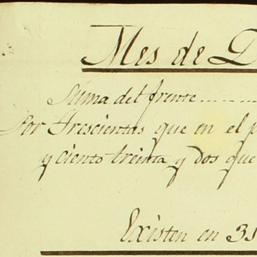 Mes de D
Suma del frente
Por Trescientas que en el p
y ciento treinta y dos que
Existen en 31